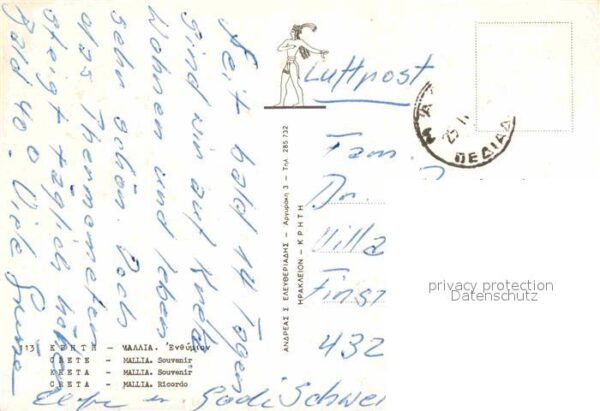 Seit bald 14 Tagen
sind wir auf Kreta
Wohnen und leben
sehr schön. Doch
das Thermometer
steigt täglich höher
Bald 40°. Viele Grüsse
Luftpost
Fam.
Dr.
Villa
Fins
432
ΠΕΔΙΑΔ
ΑΝΔΡΕΑΣ Σ. ΕΛΕΥΘΕΡΙΑΔΗΣ - Αργυράκη 3 - Τηλ. 285.732
ΗΡΑΚΛΕΙΟΝ - ΚΡΗΤΗ
113 ΚΡΗΤΗ - ΜΑΛΛΙΑ. Ἐνθύμιον
CRETE - MALLIA. Souvenir
KRETA - MALLIA. Souvenir
CRETA - MALLIA. Ricordo
privacy protection
Datenschutz